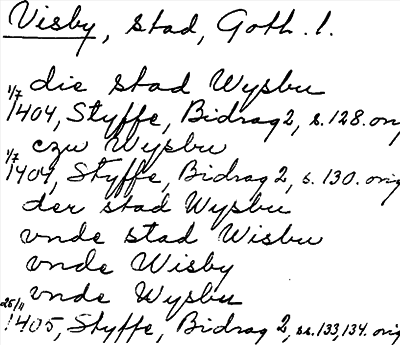 Visby, stad, Goth. l.
die stad Wysbu
1/7 1404, Styffe, Bidrag 2, s. 128. orig
czu Wysbu
1/7 1404, Styffe, Bidrag 2, s. 130. orig
der stad Wysbu
vnde stad Wisbu
vnde Wisby
vnde Wysbu
25/11 1405, Styffe, Bidrag 2, ss. 133, 134. orig